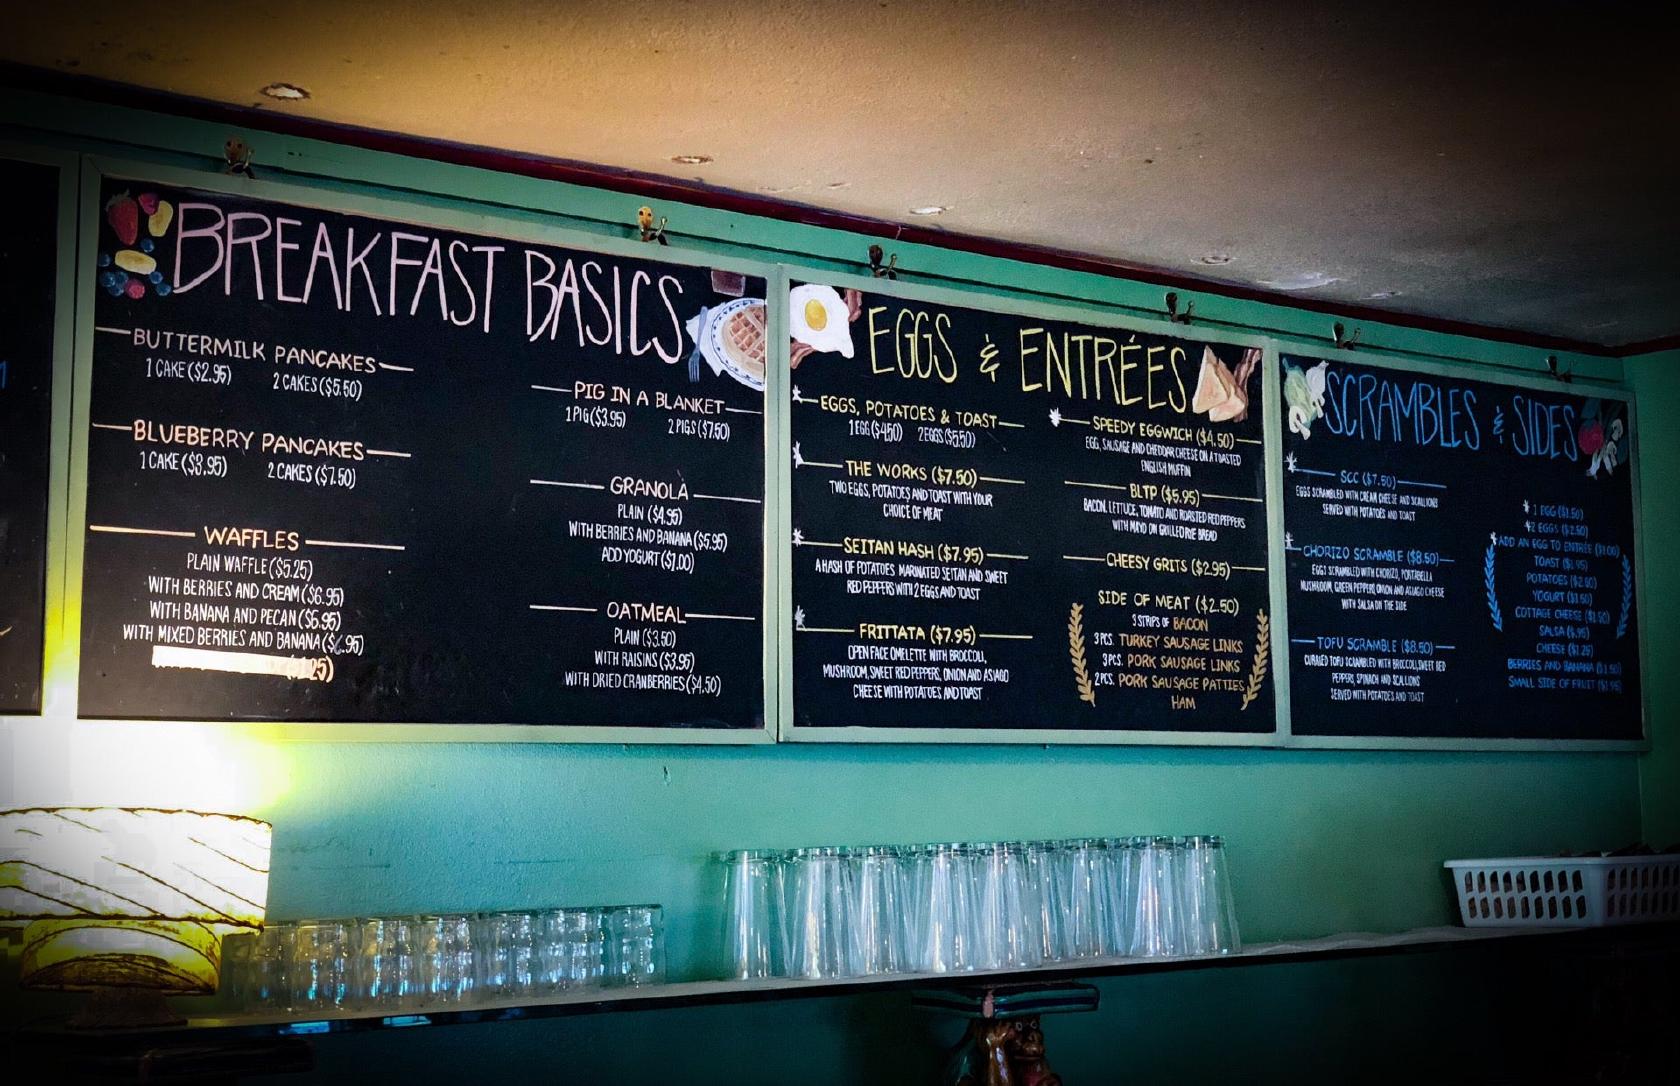 BREAKFAST BASICS
BUTTERMILK PANCAKES
1 CAKE ($2.95) 2 CAKES ($5.50)
BLUEBERRY PANCAKES
1 CAKE ($3.95) 2 CAKES ($7.50)
WAFFLES
PLAIN WAFFLE ($5.25)
WITH BERRIES AND CREAM ($6.95)
WITH BANANA AND PECAN ($6.95)
WITH MIXED BERRIES AND BANANA ($6.95)
PIG IN A BLANKET
1 PIG ($3.95) 2 PIGS ($7.50)
GRANOLA
PLAIN ($4.95)
WITH BERRIES AND BANANA ($5.95)
ADD YOGURT ($1.00)
OATMEAL
PLAIN ($3.50)
WITH RAISINS ($3.95)
WITH DRIED CRANBERRIES ($4.50)
EGGS & ENTRÉES
EGGS, POTATOES & TOAST
1 EGG ($4.50) 2 EGGS ($5.50)
THE WORKS ($7.50)
TWO EGGS, POTATOES AND TOAST WITH YOUR
CHOICE OF MEAT
SEITAN HASH ($7.95)
A HASH OF POTATOES MARINATED SEITAN AND SWEET
RED PEPPERS WITH 2 EGGS AND TOAST
FRITTATA ($7.95)
OPEN FACE OMELETTE WITH BROCCOLI,
MUSHROOM, SWEET RED PEPPERS, ONION AND ASIAGO
CHEESE WITH POTATOES AND TOAST
SPEEDY EGGWICH ($4.50)
EGG, SAUSAGE AND CHEDDAR CHEESE ON A TOASTED
ENGLISH MUFFIN
BLTP ($5.95)
BACON, LETTUCE, TOMATO AND ROASTED RED PEPPERS
WITH MAYO ON GRILLED RYE BREAD
CHEESY GRITS ($2.95)
SIDE OF MEAT ($2.50)
3 STRIPS OF BACON
3 PCS. TURKEY SAUSAGE LINKS
3 PCS. PORK SAUSAGE LINKS
2 PCS. PORK SAUSAGE PATTIES
HAM
SCRAMBLES & SIDES
SCC ($7.50)
EGGS SCRAMBLED WITH CREAM CHEESE AND SCALLIONS
SERVED WITH POTATOES AND TOAST
CHORIZO SCRAMBLE ($8.50)
EGGS SCRAMBLED WITH CHORIZO, PORTABELLA
MUSHROOM, GREEN PEPPER, ONION AND ASIAGO CHEESE
WITH SALSA ON THE SIDE
TOFU SCRAMBLE ($8.50)
CURRIED TOFU SCRAMBLED WITH BROCCOLI, SWEET RED
PEPPERS, SPINACH AND SCALLIONS
SERVED WITH POTATOES AND TOAST
1 EGG ($1.50)
2 EGGS ($2.50)
ADD AN EGG TO ENTRÉE ($1.00)
TOAST ($1.95)
POTATOES ($2.50)
YOGURT ($1.50)
COTTAGE CHEESE ($1.50)
SALSA ($.95)
CHEESE ($1.25)
BERRIES AND BANANA ($1.50)
SMALL SIDE OF FRUIT ($1.95)